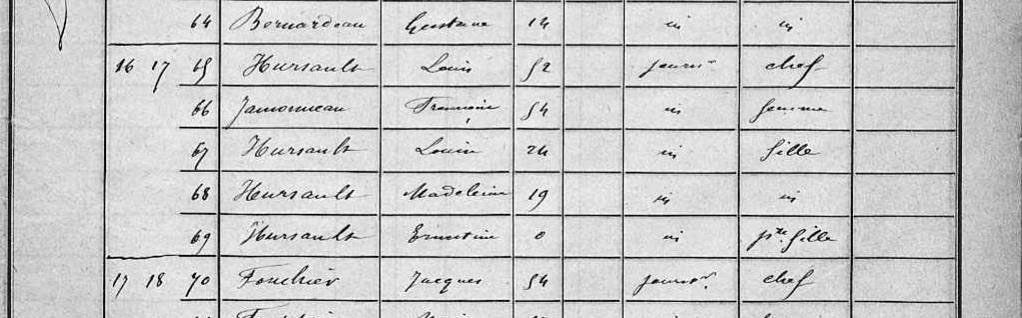 64 Bernardeau Gustave 14 in in
16 17 65 Hursault Louis 52 journr chef
66 Jamonneau Françoise 54 in femme
67 Hursault Louise 24 in fille
68 Hursault Madeleine 19 in in
69 Hursault Ernestine 0 in pte fille
17 18 70 Fouchier Jacques 54 journr. chef